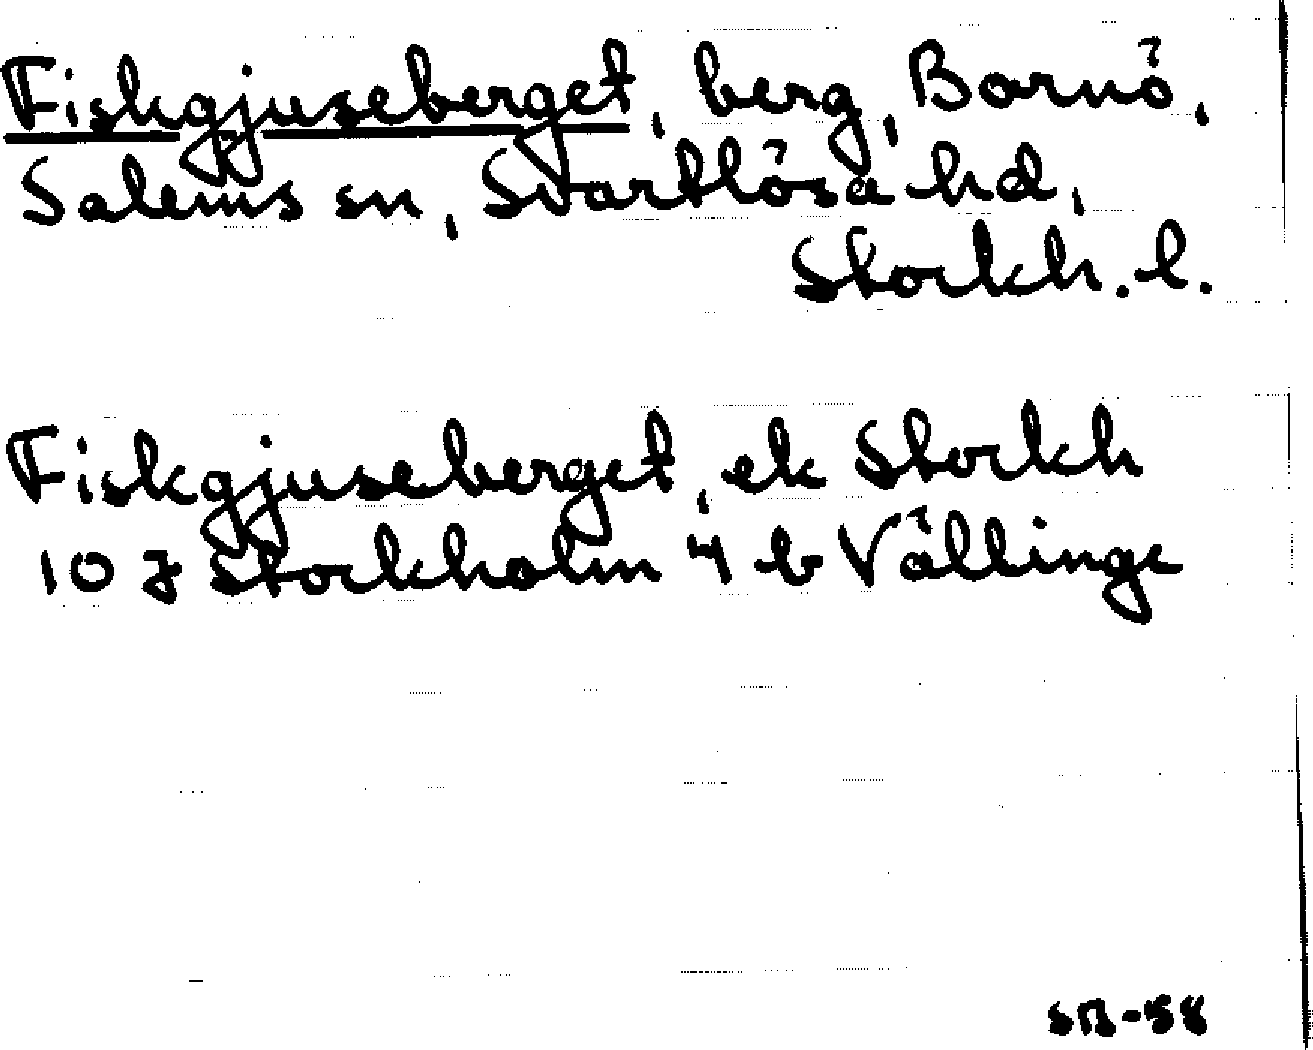 Fiskgjuseberget, berg, Bornö,
Salems sn, Svartlösa hd,
Stockh. l.
Fiskgjuseberget, ek Stockh
10 J Stockholm 4 b Vällinge
SR-58